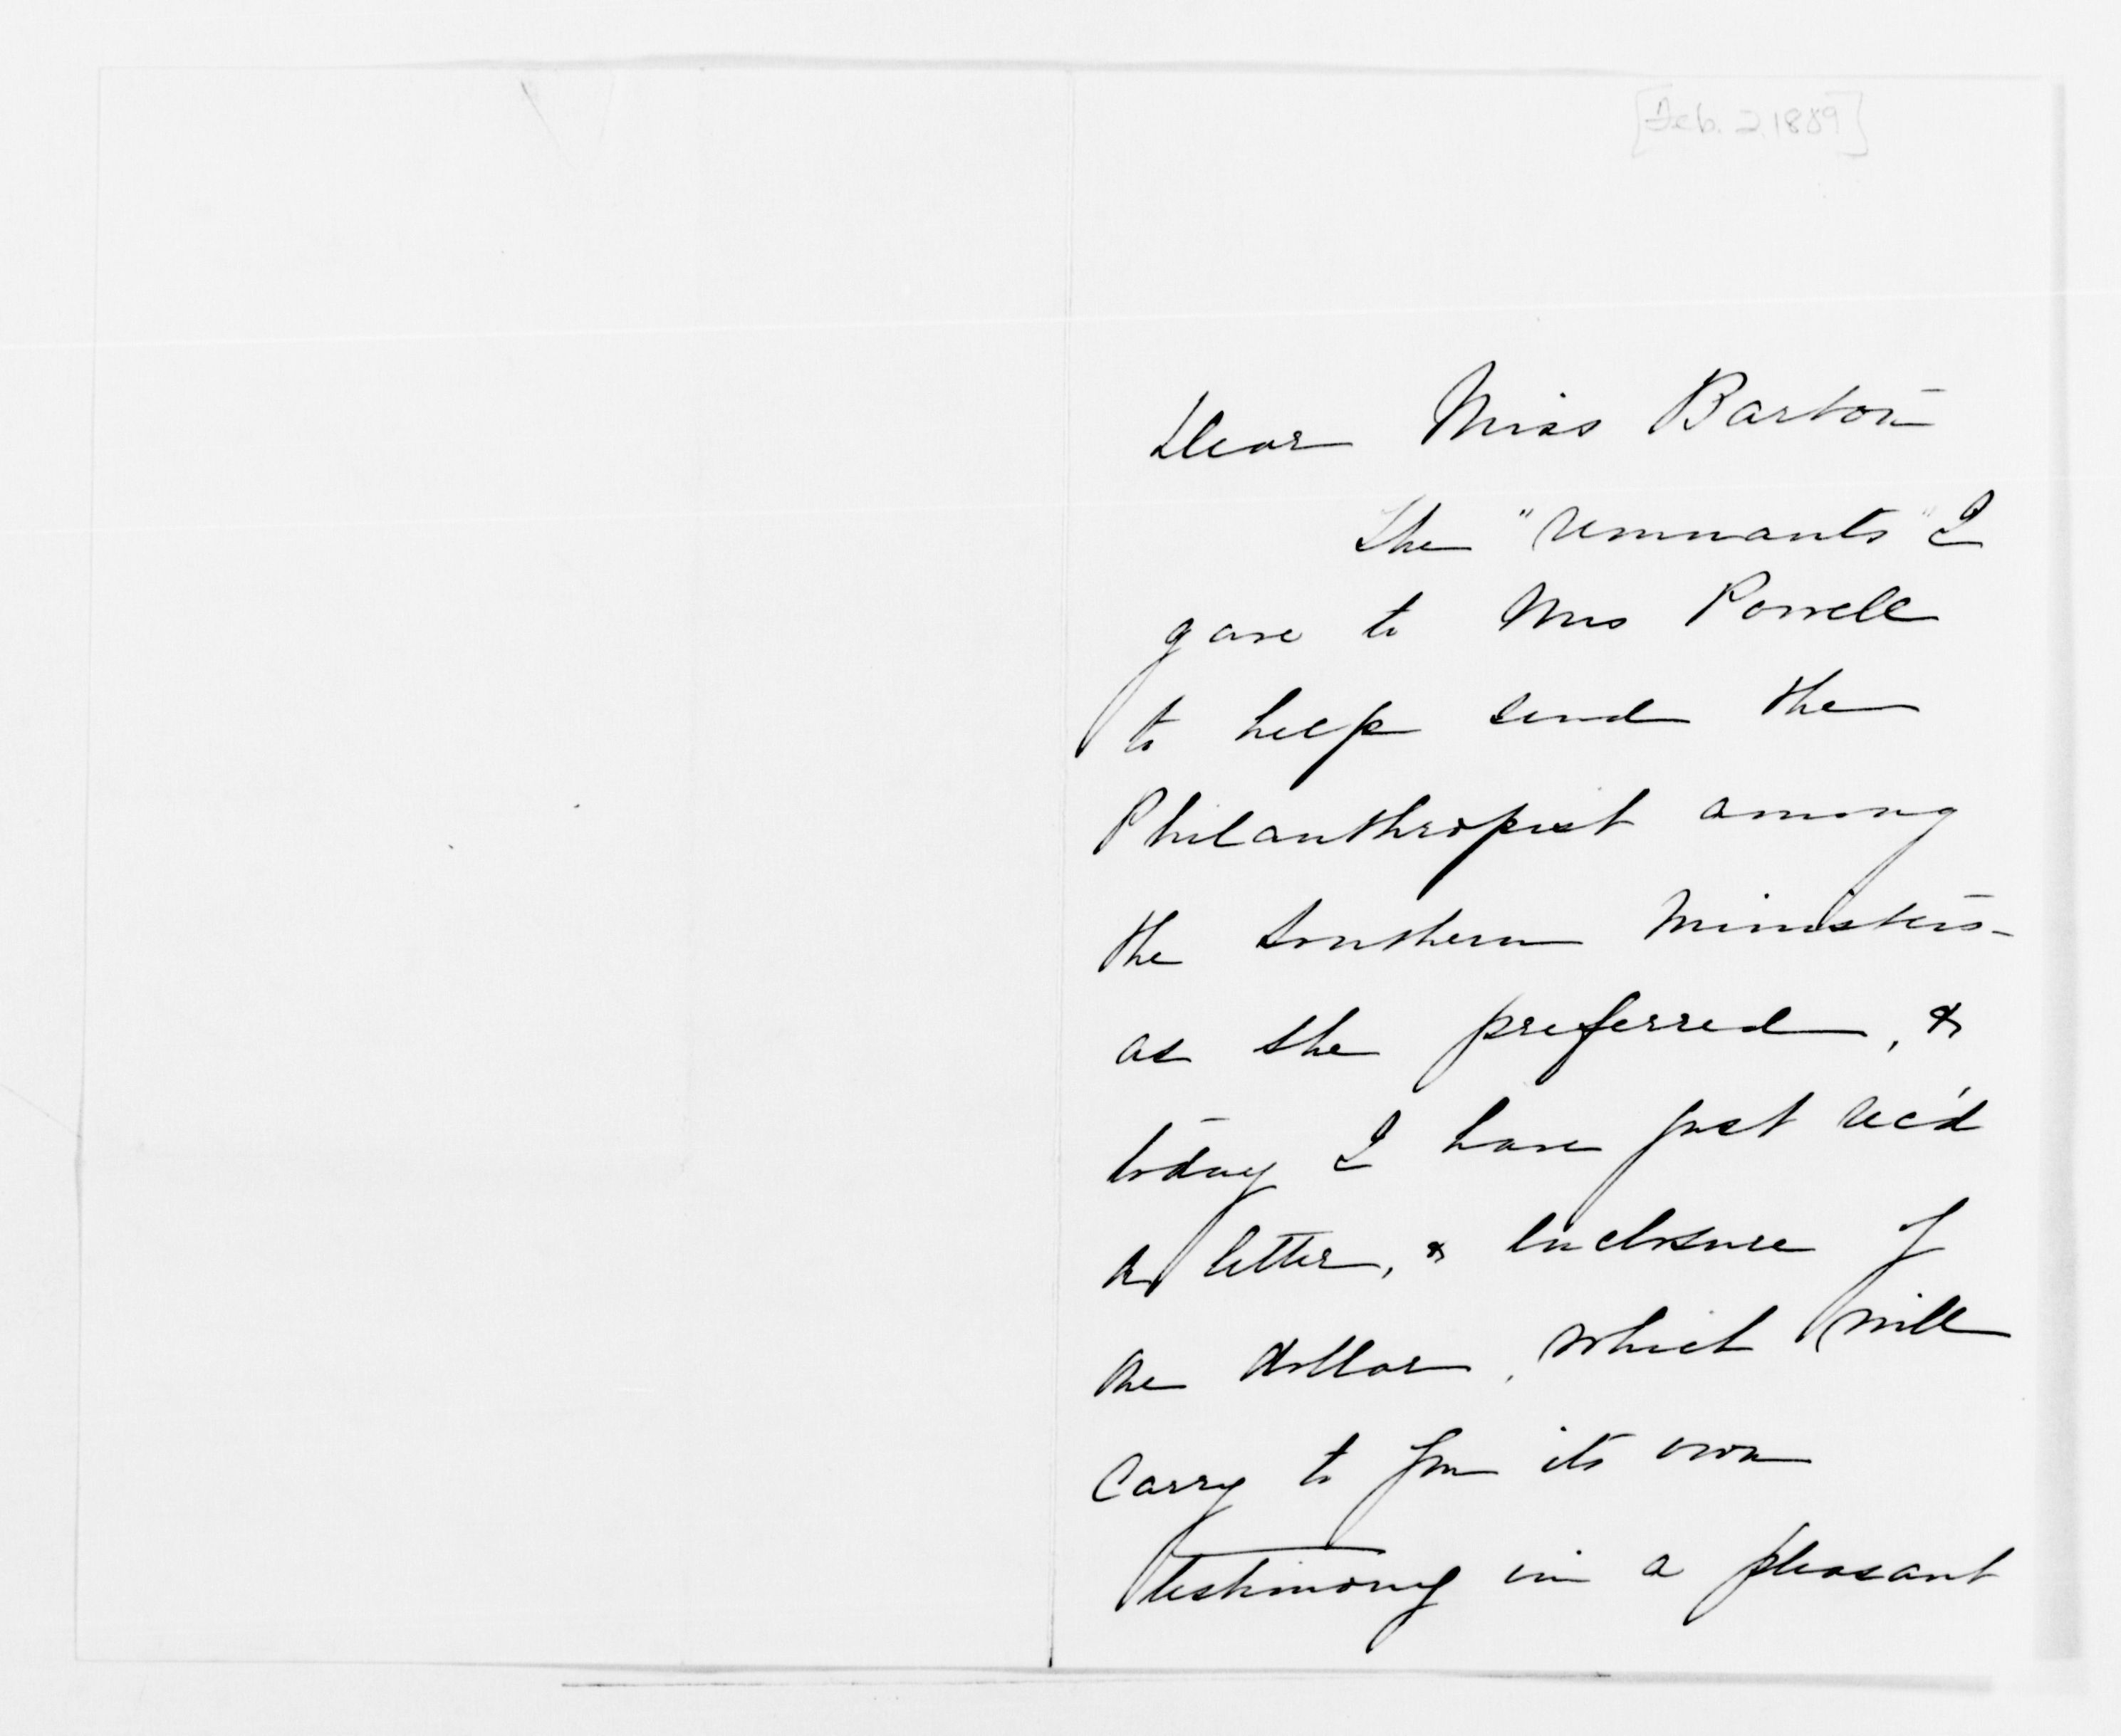 [Feb. 2, 1889]
Dear Miss Barton
The "remnants" I
gave to Mrs Powell
to help send the
Philanthropist among
the Southern Ministers -
as she preferred, &
today I have just rec'd
a letter, & enclosure of
one dollar, which will
carry to you its own
testimony in a pleasant